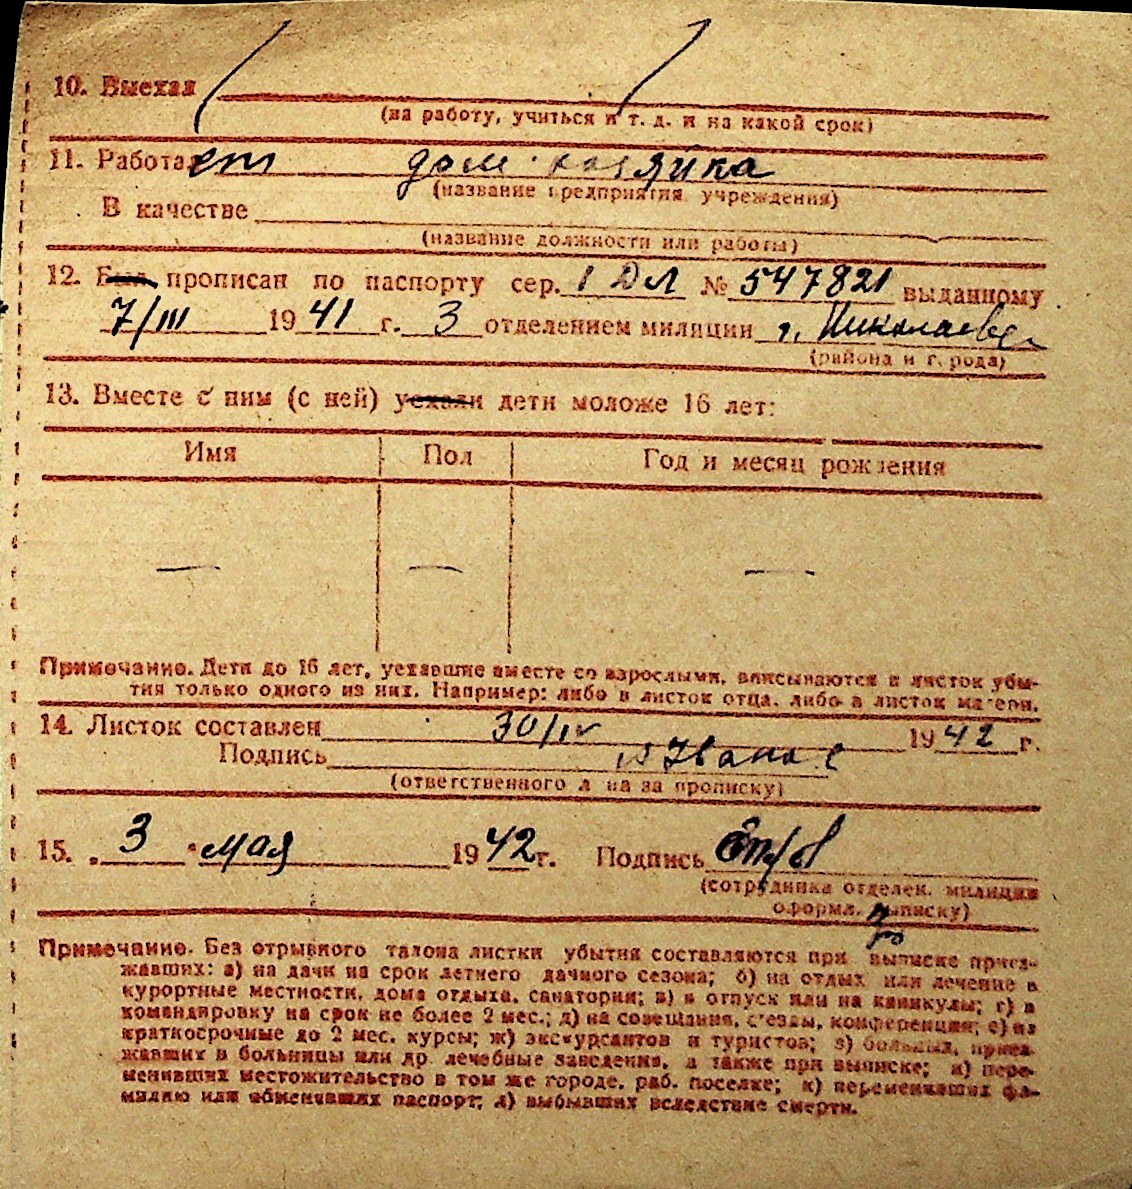 10. Выехал
(на работу, учиться и т. д. и на какой срок)
11. Работает дом. хозяйка
(название предприятия учреждения)
В качестве
(название должности или работы)
12. Был прописан по паспорту сер. I ДЛ № 547821 выданному
7/III 1941 г. 3 отделением милиции г. Николаева
(района и города)
13. Вместе с ним (с ней) уехали дети моложе 16 лет:
Имя Пол Год и месяц рождения
— — —
Примечание. Дети до 16 лет, уехавшие вместе со взрослыми, вписываются в листок убы-
тия только одного из них. Например: либо в листок отца, либо в листок матери.
14. Листок составлен 30/IV 1942 г.
Подпись
(ответственного лица за прописку)
15. „3" мая 1942 г. Подпись
(сотрудника отделен. милиции
оформл. выписку)
Примечание. Без отрывного талона листки убытия составляются при выписке приез-
жавших: а) на дачи на срок летнего дачного сезона; б) на отдых или лечение в
курортные местности, дома отдыха, санатории; в) в отпуск или на каникулы; г) в
командировку на срок не более 2 мес.; д) на совещания, с'езды, конференции; е) на
краткосрочные до 2 мес. курсы; ж) экскурсантов и туристов; з) больных, приез-
жавших в больницы или др. лечебные заведения, а также при выписке; и) пере-
менивших местожительство в том же городе, раб. поселке; к) переменивших фа-
милию или обменявших паспорт; л) выбывших вследствие смерти.